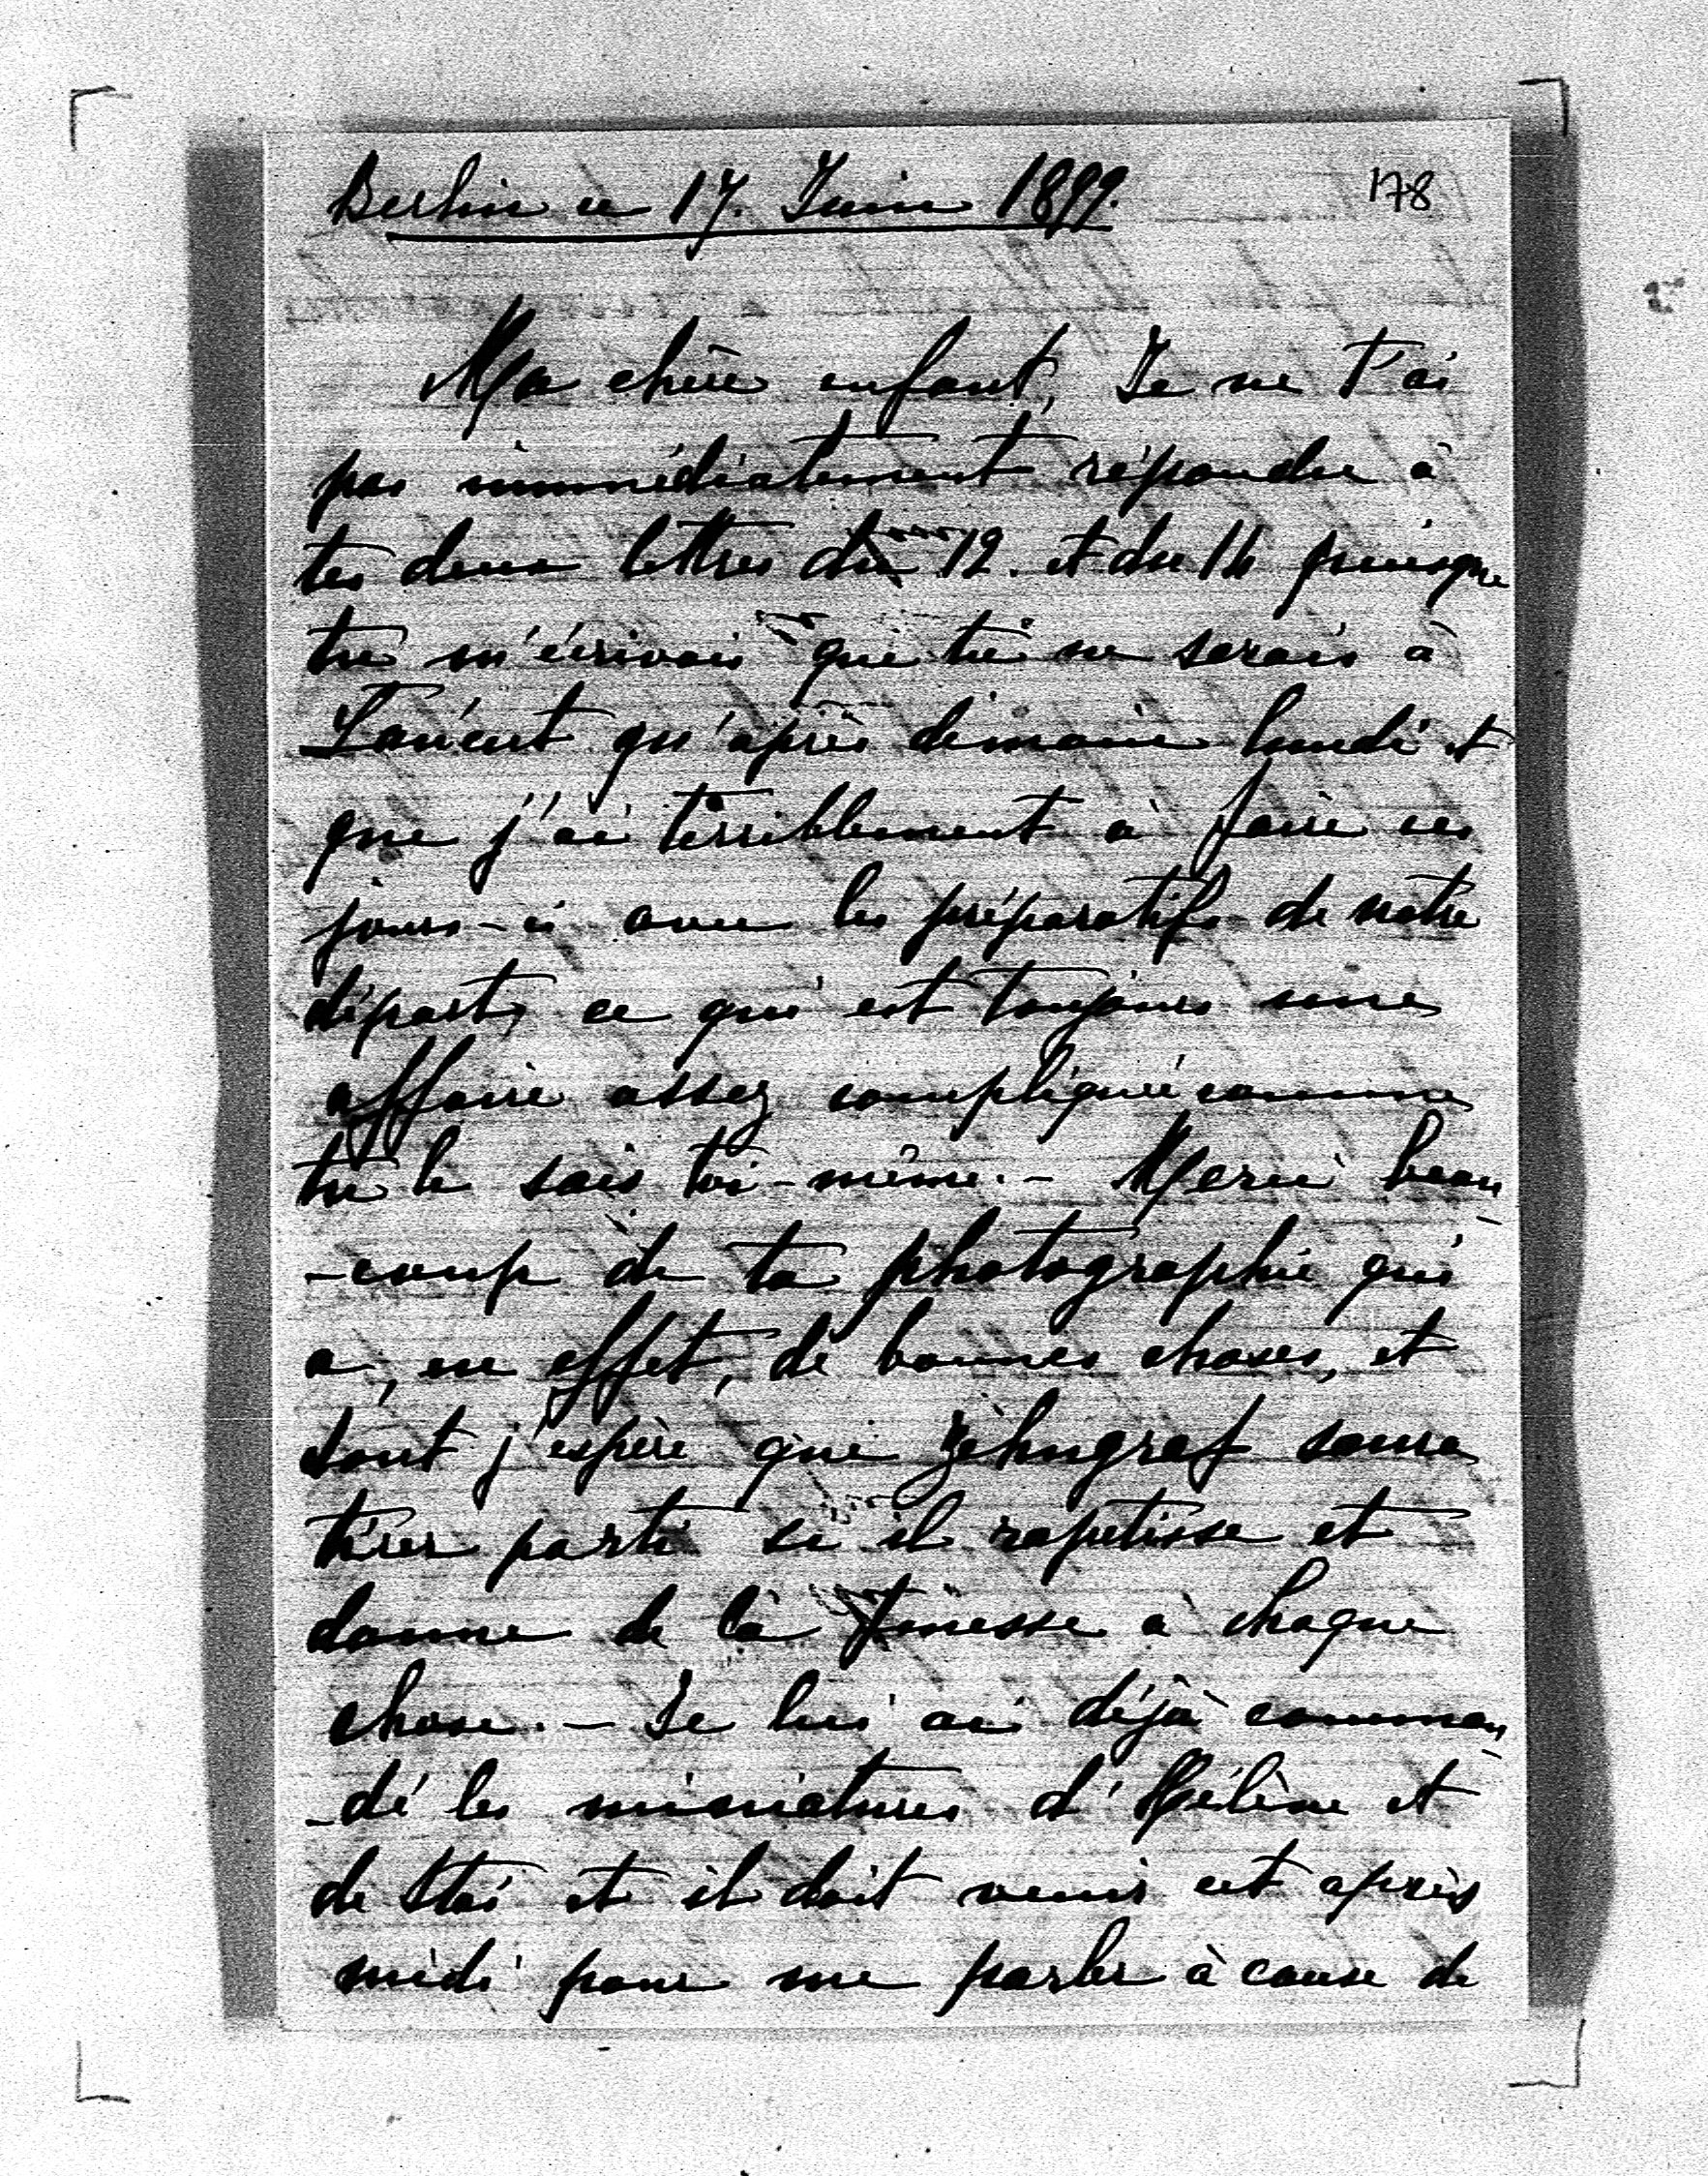 Berlin ce 17. Juin 1899.
178
Ma chère enfant, Je ne t'ai
pas immédiatement répondu à
tes deux lettres du 12. et du 14 puisque
tu m'écrivais que tu ne serais à
qu'après demain lundi et
que j'ai terriblement à faire ces
jours-ci avec les préparatifs de notre
départ, ce qui est toujours une
affaire assez compliquée comme
tu le sais toi-même. - Merci beau
-coup de ta photographie qui
a, en effet, de bonnes choses, et
dont j'espère que Zehngraf saura
tirer parti si il rapetisse et
donne de la finesse à chaque
chose. - Je lui ai déjà comman
-dé les miniatures d'Hélène et
de et il doit venir cet après
midi pour me parler à cause de